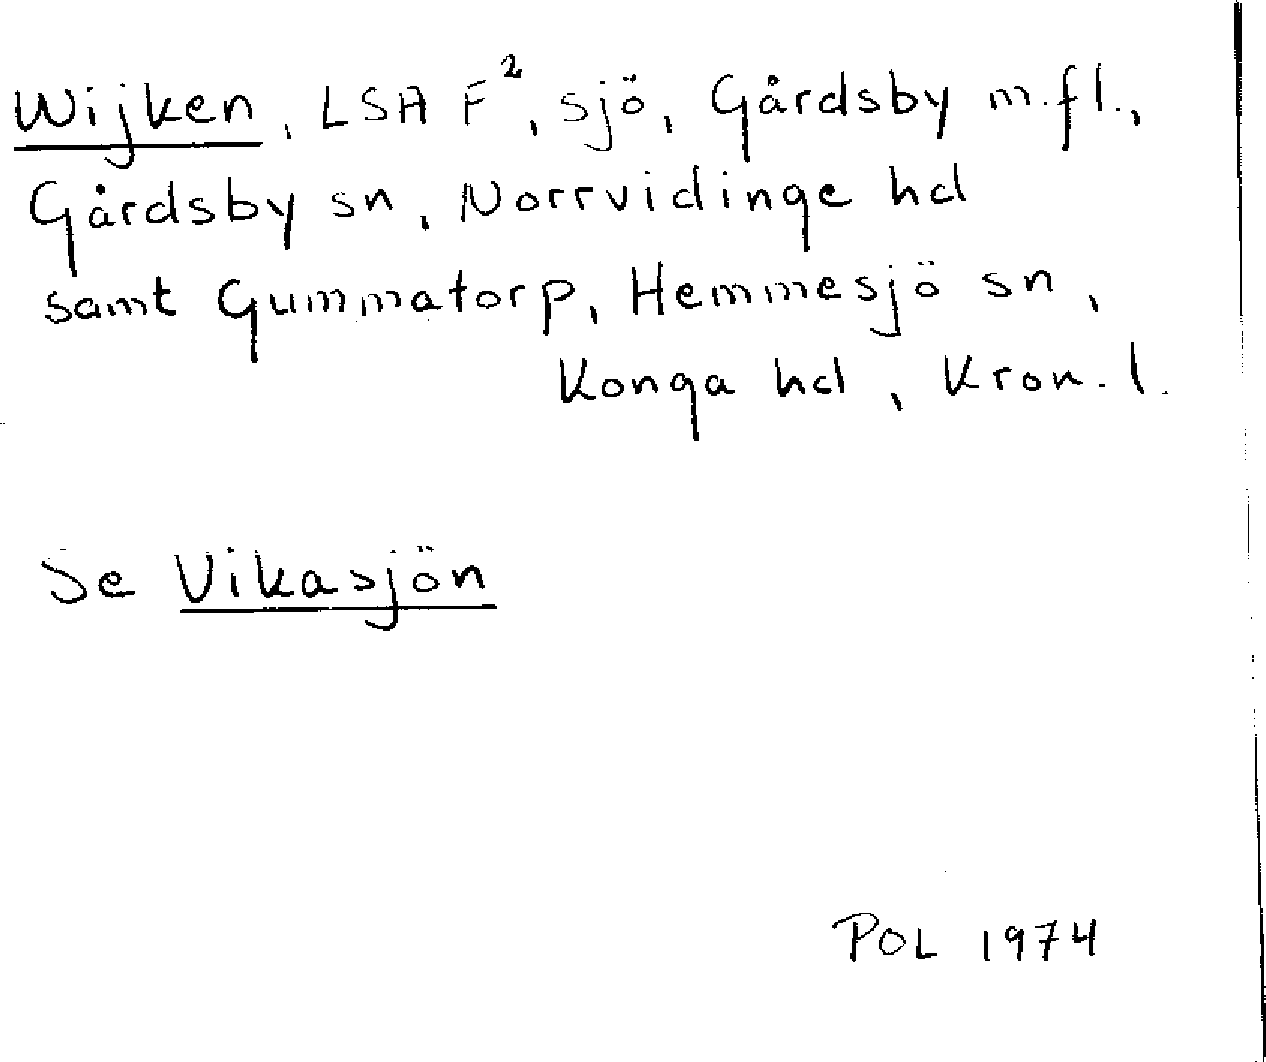 Wijken, LSA F², sjö, Gårdsby m.fl.,
Gårdsby sn, Norrvidinge hd
samt Gummatorp, Hemmesjö sn,
Konga hd, Kron. l.
Se Vikasjön
POL 1974